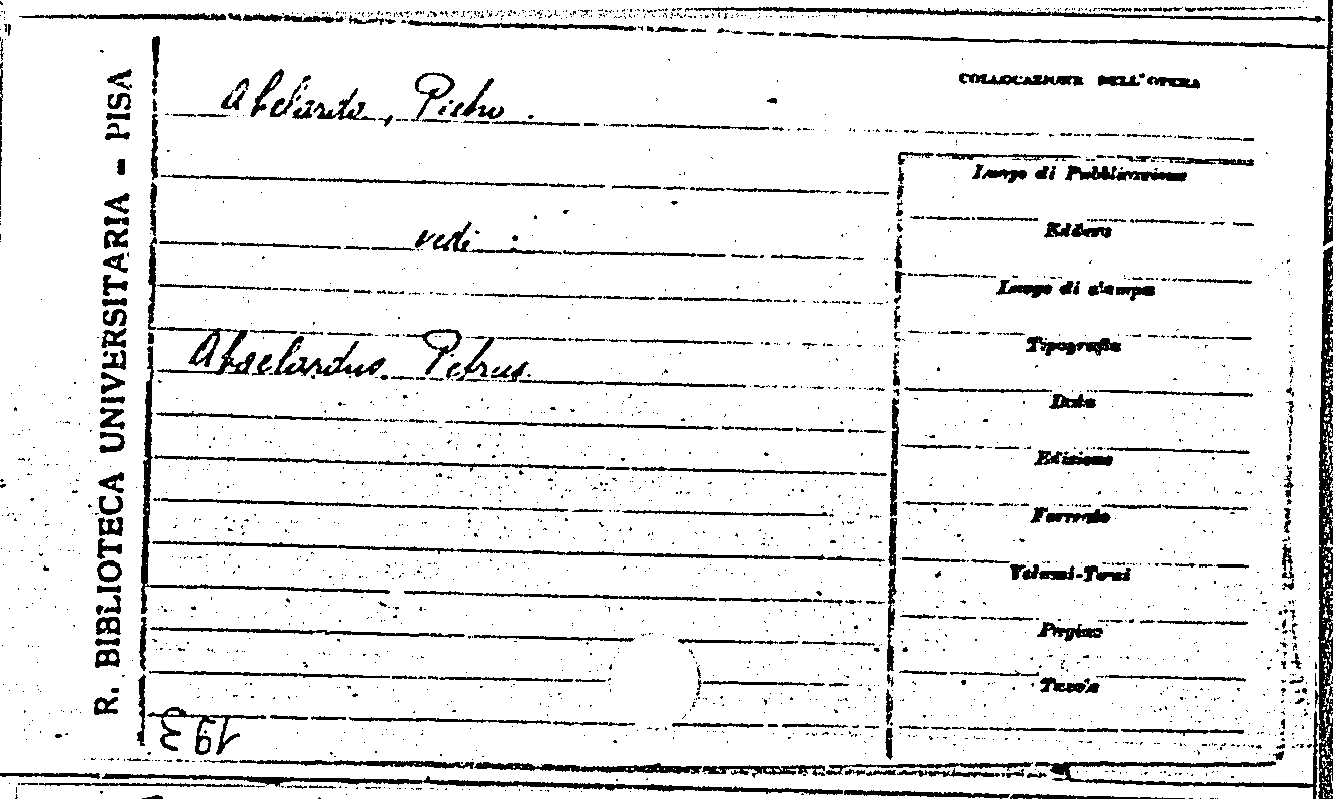 R. BIBLIOTECA UNIVERSITARIA - PISA
Abelardo, Pietro.
vedi :
Abaelardus Petrus.
COLLOCAZIONE DELL'OPERA
Luogo di Pubblicazione
Editore
Luogo di stampa
Tipografia
Data
Edizione
Formato
Volumi-Tomi
Pagine
Tavole